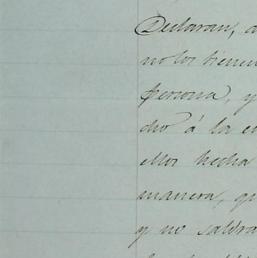 Declaran, a
no los tienen
persona, y
cho á la en
ellos hecha
manera, qu
y no saldra